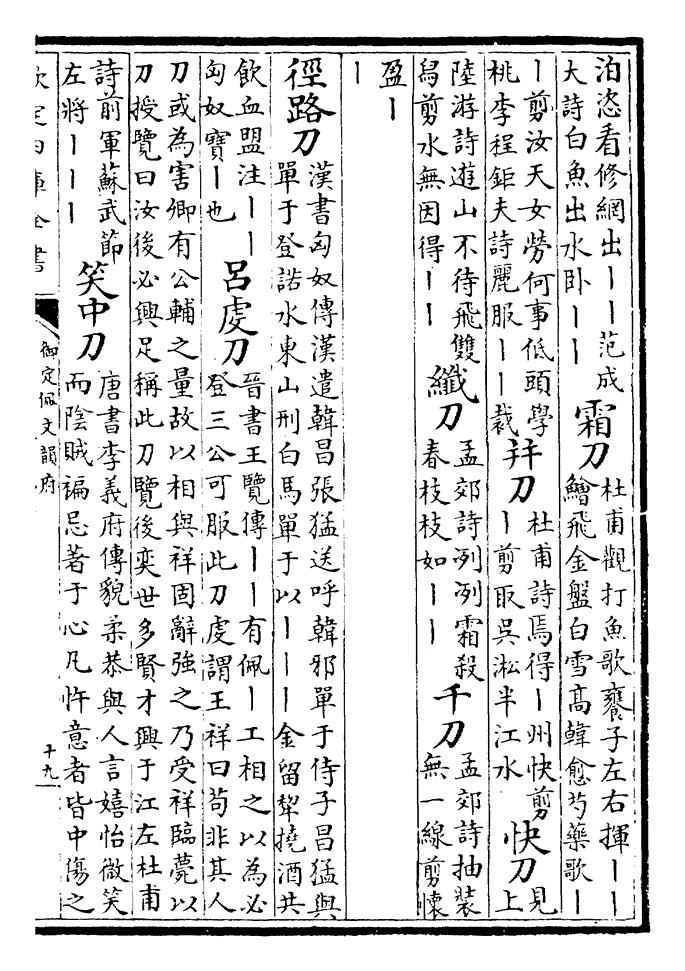 泊恣看修網出丨丨范成
大詩白魚出水卧丨丨
霜刀
杜甫觀打魚歌饔子左右揮丨丨
鱠飛金盤白雪高韓愈芍藥歌丨
丨剪汝天女勞何事低頭學
桃李程鉅夫詩麗服丨丨裁
并刀
杜甫詩焉得丨州快剪
丨剪取吳淞半江水
快刀
見
上
陸游詩遊山不待飛雙
舄剪水無因得丨丨
纖刀
孟郊詩冽冽霜殺
春枝枝如丨丨
千刀
孟郊詩抽裝
無一線剪懷
盈丨
丨
徑路刀
漢書匈奴傳漢遣韓昌張猛送呼韓邪單于侍子昌猛與
單于登諾水東山刑白馬單于以丨丨丨金留犂撓酒共
飲血盟注丨丨
匈奴寶丨也
呂虔刀
晉書王覽傳丨丨有佩丨工相之以為必
登三公可服此刀虔謂王祥曰苟非其人
刀或為害卿有公輔之量故以相與祥固辭強之乃受祥臨薨以
刀授覽曰汝後必興足稱此刀覽後奕世多賢才興于江左杜甫
詩前軍蘇武節
左將丨丨丨
笑中刀
唐書李義府傳貌柔恭與人言嬉怡微笑
而陰賊褊忌著于心凡忤意者皆中傷之
欽定四庫全書
御定佩文韻府
十九